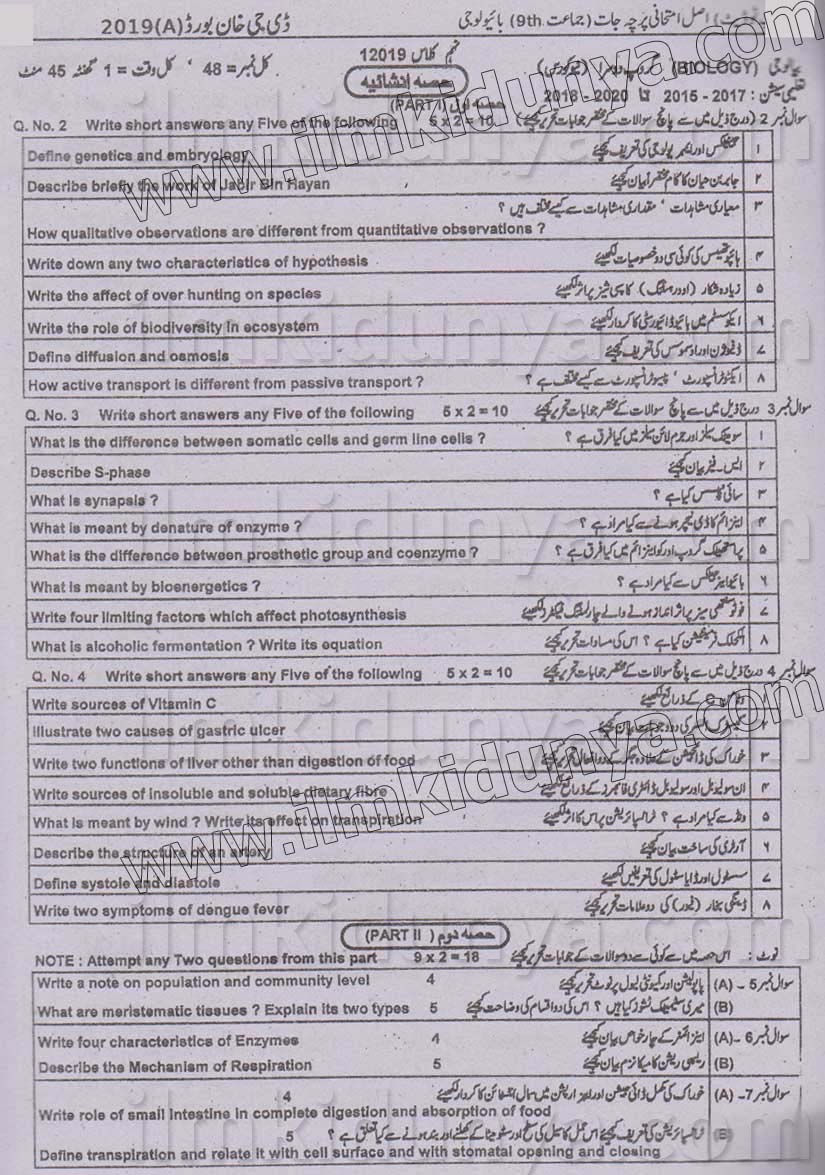 اصل امتحانی پرچہ جات (جماعت 9th) بائیولوجی ڈی جی خان بورڈ 2019(A)
نہم کلاس 12019
(BIOLOGY) گروپ کل نمبر = 48 ' کل وقت = 1 گھنٹہ 45 منٹ
حصہ انشائیہ
تعلیمی سیشن : 2015 - 2017 تا 2018 - 2020
حصہ اول (PART I)
Q. No. 2 Write short answers any Five of the following 5 x 2 = 10 سوال نمبر 2 درج ذیل میں سے پانچ سوالات کے مختصر جوابات تحریر کیجئے
Define genetics and embryology جینیٹکس اور ایمبریولوجی کی تعریف کیجئے ۱
Describe briefly the work of Jabir Bin Hayan جابر بن حیان کا کام مختصراً بیان کیجئے ۲
معیاری مشاہدات ' مقداری مشاہدات سے کیسے مختلف ہیں ؟ ۳
How qualitative observations are different from quantitative observations ?
Write down any two characteristics of hypothesis ہائپوتھیسس کی کوئی سی دو خصوصیات لکھیئے ۴
Write the affect of over hunting on species زیادہ شکار (اوور ہنٹنگ) کا سپی شیز پر اثر لکھیئے ۵
Write the role of biodiversity in ecosystem ایکوسسٹم میں بائیوڈائیورسٹی کا کردار لکھیئے ۶
Define diffusion and osmosis ڈفیوژن اور اوسموسس کی تعریف کیجئے ۷
How active transport is different from passive transport ? ایکٹو ٹرانسپورٹ ' پیسو ٹرانسپورٹ سے کیسے مختلف ہے ؟ ۸
Q. No. 3 Write short answers any Five of the following 5 x 2 = 10 سوال نمبر 3 درج ذیل میں سے پانچ سوالات کے مختصر جوابات تحریر کیجئے
What is the difference between somatic cells and germ line cells ? سومیٹک سیلز اور جرم لائن سیلز میں کیا فرق ہے ؟ ۱
Describe S-phase ایس۔فیز بیان کیجئے ۲
What is synapsis ? سائی نیپسس کیا ہے ؟ ۳
What is meant by denature of enzyme ? اینزائم کا ڈی نیچر ہونے سے کیا مراد ہے ؟ ۴
What is the difference between prosthetic group and coenzyme ? پراستھیٹک گروپ اور کو اینزائم میں کیا فرق ہے ؟ ۵
What is meant by bioenergetics ? بائیو اینرجیٹکس سے کیا مراد ہے ؟ ۶
Write four limiting factors which affect photosynthesis فوٹو سنتھی سیز پر اثر انداز ہونے والے چار لمٹنگ فیکٹرز لکھیئے ۷
What is alcoholic fermentation ? Write its equation الکحلک فرمنٹیشن کیا ہے ؟ اس کی مساوات تحریر کیجئے ۸
Q. No. 4 Write short answers any Five of the following 5 x 2 = 10 سوال نمبر 4 درج ذیل میں سے پانچ سوالات کے مختصر جوابات تحریر کیجئے
Write sources of Vitamin C کے ذرائع لکھیئے
Illustrate two causes of gastric ulcer بیان کیجئے ۲
Write two functions of liver other than digestion of food خوراک کی ڈائجیشن کے علاوہ جگر کے دو افعال تحریر کیجئے ۳
Write sources of insoluble and soluble dietary fibre ان سولیوبل اور سولیوبل ڈائٹری فائبرز کے ذرائع لکھیئے ۴
What is meant by wind ? Write its effect on transpiration ونڈ سے کیا مراد ہے ؟ ٹرانسپائریشن پر اس کا اثر لکھیئے ۵
Describe the structure of an artery آرٹری کی ساخت بیان کیجئے ۶
Define systole and diastole سسٹول اور ڈایا سٹول کی تعریفیں لکھیئے ۷
Write two symptoms of dengue fever ڈینگی بخار (فیور) کی دو علامات تحریر کیجئے ۸
حصہ دوم (PART II)
NOTE : Attempt any Two questions from this part 9 x 2 = 18 نوٹ : اس حصہ میں سے کوئی سے دو سوالات کے جوابات تحریر کیجئے
Write a note on population and community level 4 پاپولیشن اور کمیونٹی لیول پر نوٹ تحریر کیجئے سوال نمبر 5 - (A)
What are meristematic tissues ? Explain its two types 5 میری سٹیمیٹک ٹشوز کیا ہیں ؟ اس کی دو اقسام کی وضاحت کیجئے (B)
Write four characteristics of Enzymes 4 اینزائمز کے چار خواص بیان کیجئے سوال نمبر 6 - (A)
Describe the Mechanism of Respiration 5 ریسپی ریشن کا میکانزم بیان کیجئے (B)
4 خوراک کی مکمل ڈائی جیشن اور ایبزارپشن میں سمال انٹسٹائن کا کردار لکھیئے سوال نمبر 7 - (A)
Write role of small Intestine in complete digestion and absorption of food
5 ٹرانسپائریشن کی تعریف کیجئے اس عمل کا سیل کی سطح اور سٹومیٹا کے کھلنے اور بند ہونے سے کیا تعلق ہے ؟ (B)
Define transpiration and relate it with cell surface and with stomatal opening and closing
www.ilmkidunya.com
www.ilmkidunya.com
ilmkidunya.com
ilmkidunya.com
ilmkidunya.com
ilmkidunya.com
ilmkidunya.com